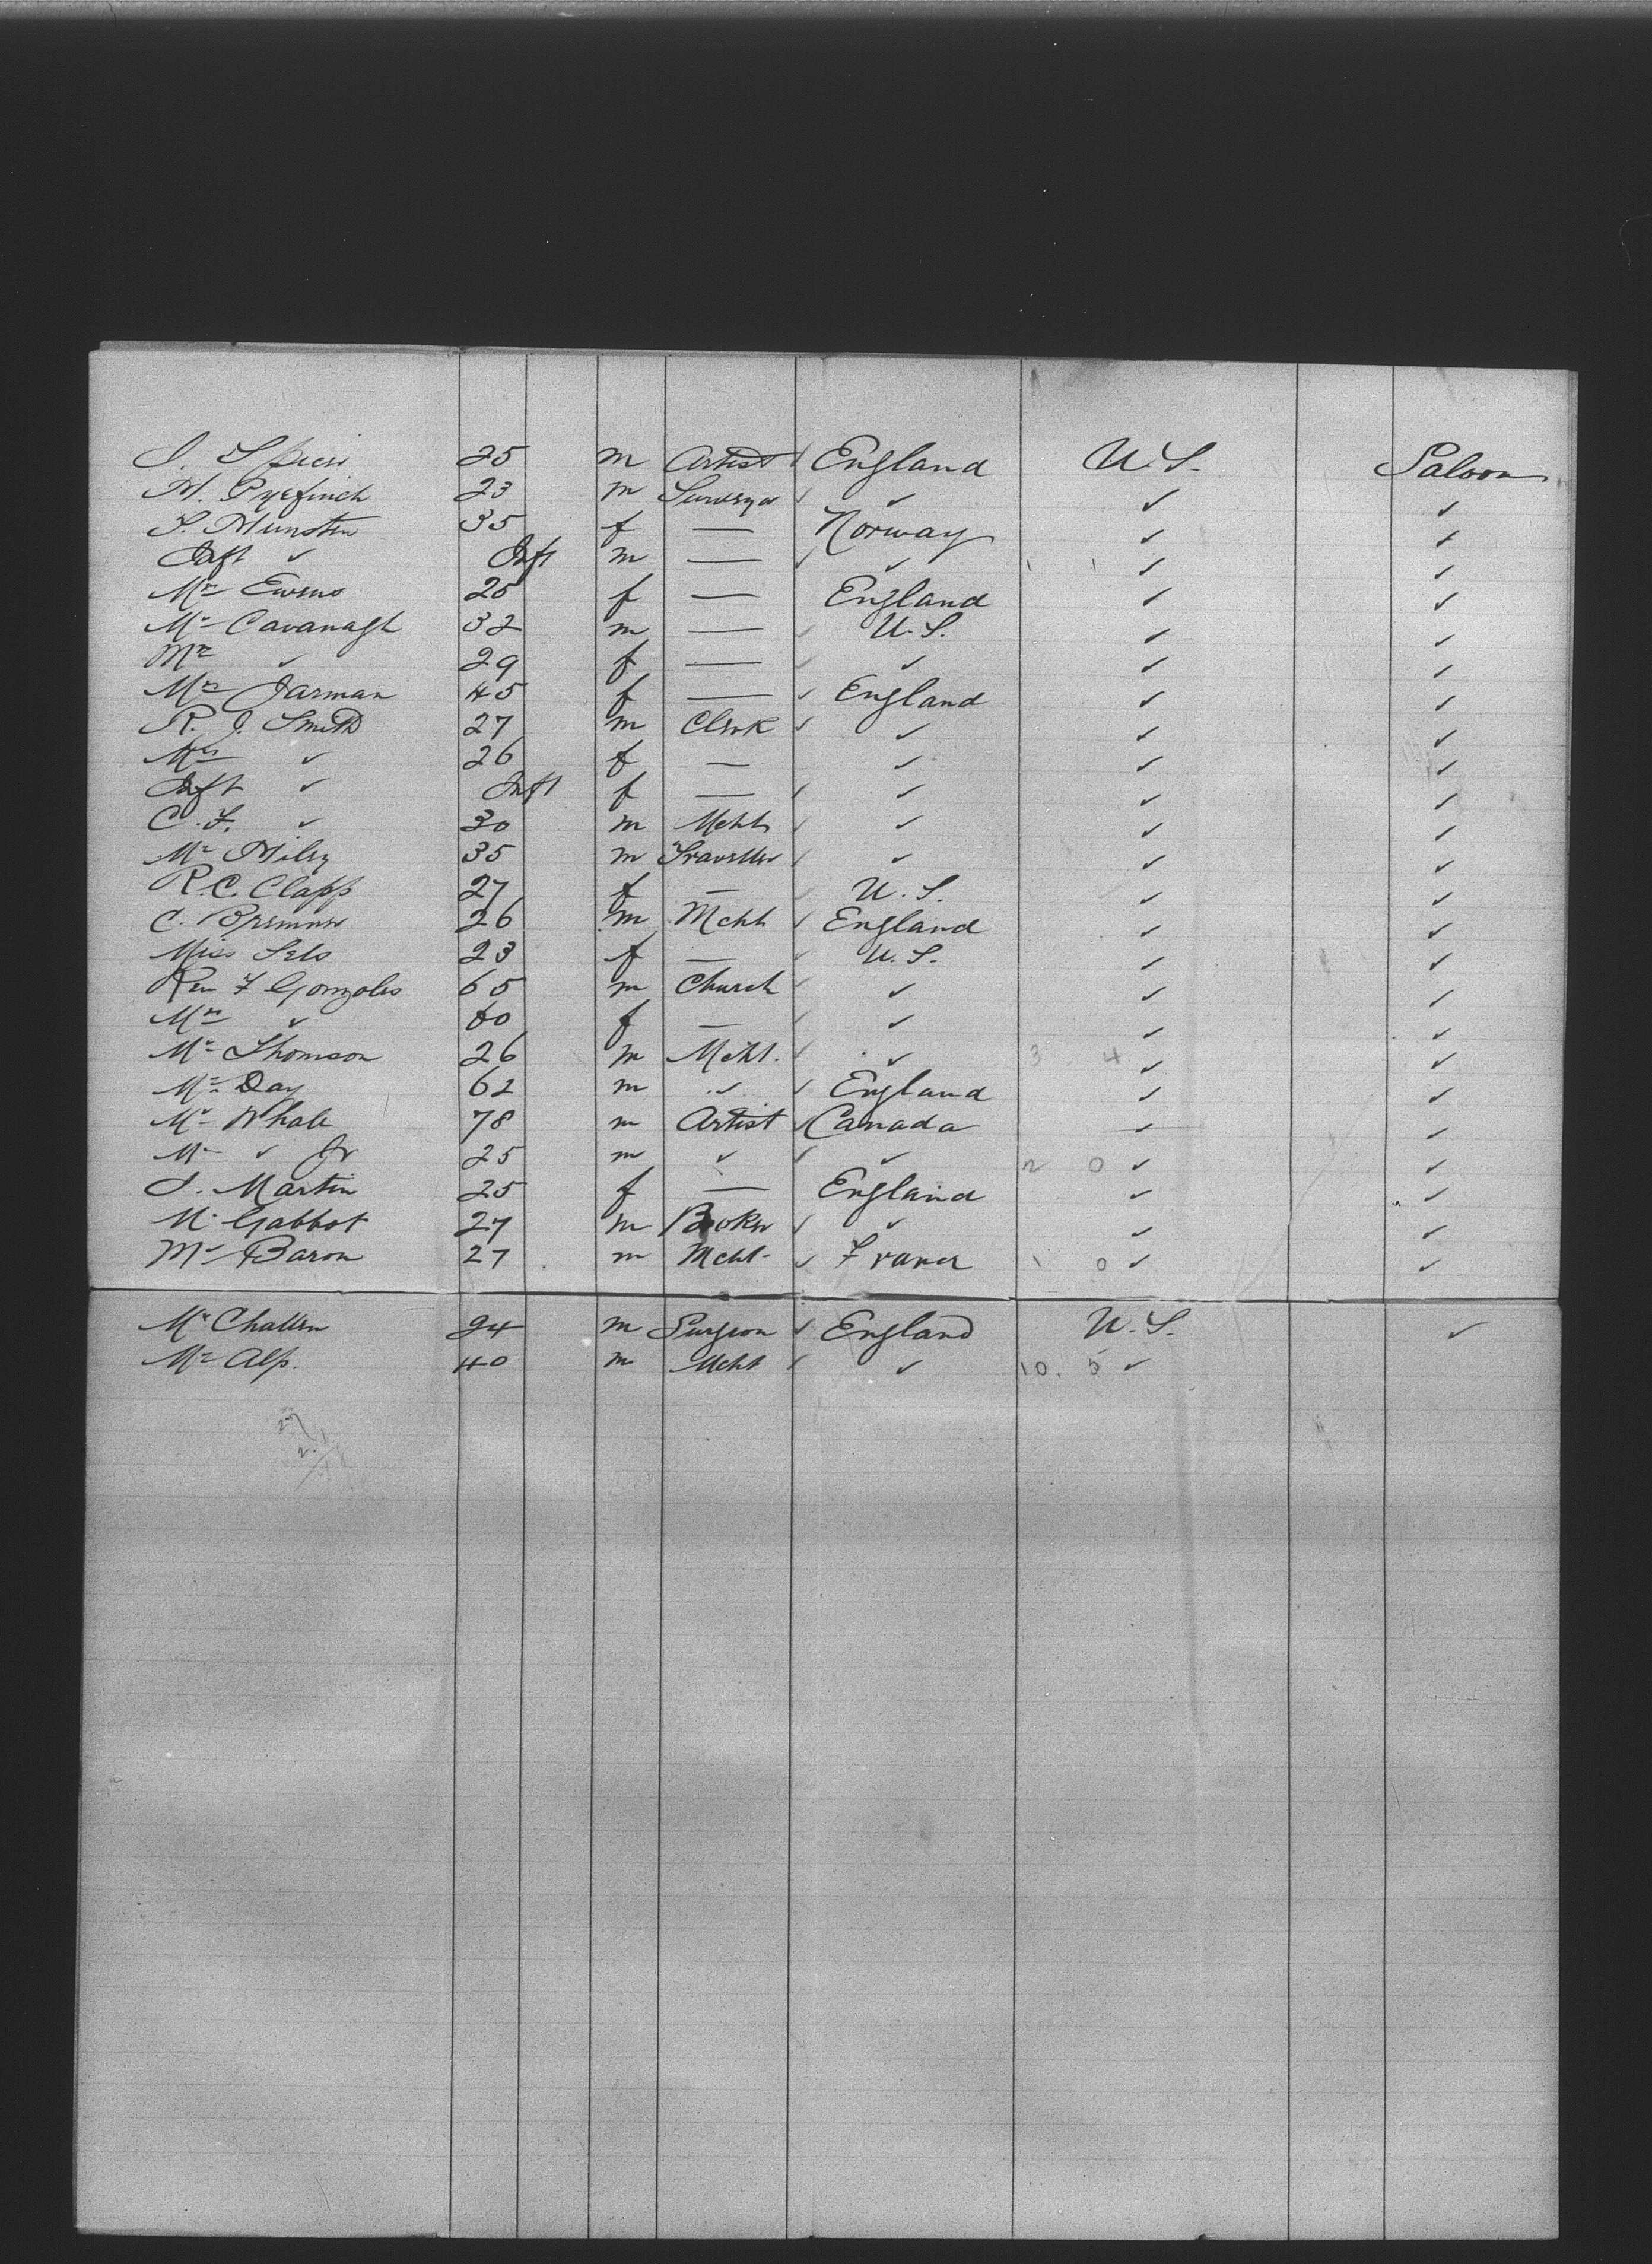 25 m Artist ✓ England U.S. Saloon
H. Pyefinch 23 m Surveyor ✓ ✓ ✓ ✓
S. Munster 35 f — Norway ✓ ✓
Inft ✓ Inft m — ✓ ✓ 1 1 ✓ ✓
Mrs Ewens 25 f — England ✓ ✓
Mr Cavanagh 32 m — ✓ U.S. ✓ ✓
Mrs ✓ 29 f — ✓ ✓ ✓ ✓
Mrs Jarman 45 f — ✓ England ✓ ✓
R. J. Smith 27 m Clerk ✓ ✓ ✓ ✓
Mrs ✓ 26 f — ✓ ✓ ✓
Inft ✓ Inft f — ✓ ✓ ✓ ✓
C. F. ✓ 30 m Mcht ✓ ✓ ✓ ✓
Mr 35 m Traveller ✓ ✓ ✓ ✓
R. C. Clapp 27 f — ✓ U.S. ✓ ✓
C. 26 m Mcht ✓ England ✓ ✓
Miss 23 f — ✓ U.S. ✓ ✓
Rev F Gonzales 65 m Church ✓ ✓ ✓ ✓
Mrs ✓ 60 f — ✓ ✓ ✓ ✓
Mr Thomson 26 m Mcht. ✓ ✓ 3 4 ✓ ✓
Mr Day 62 m ✓ ✓ England ✓ ✓
Mr Whale 78 m Artist ✓ Canada ✓ ✓
Mr ✓ Jr 25 m ✓ ✓ ✓ 2 0 ✓ ✓
S. Martin 25 f — England ✓ ✓
Mr Gabbot 27 m Broker ✓ ✓ ✓ ✓
Mr Baron 27 m Mcht ✓ France 1 0 ✓ ✓
Mr Challen 24 m Surgeon ✓ England U.S. ✓
Mr Alp. 40 m Mcht ✓ ✓ 10. 5 ✓
27